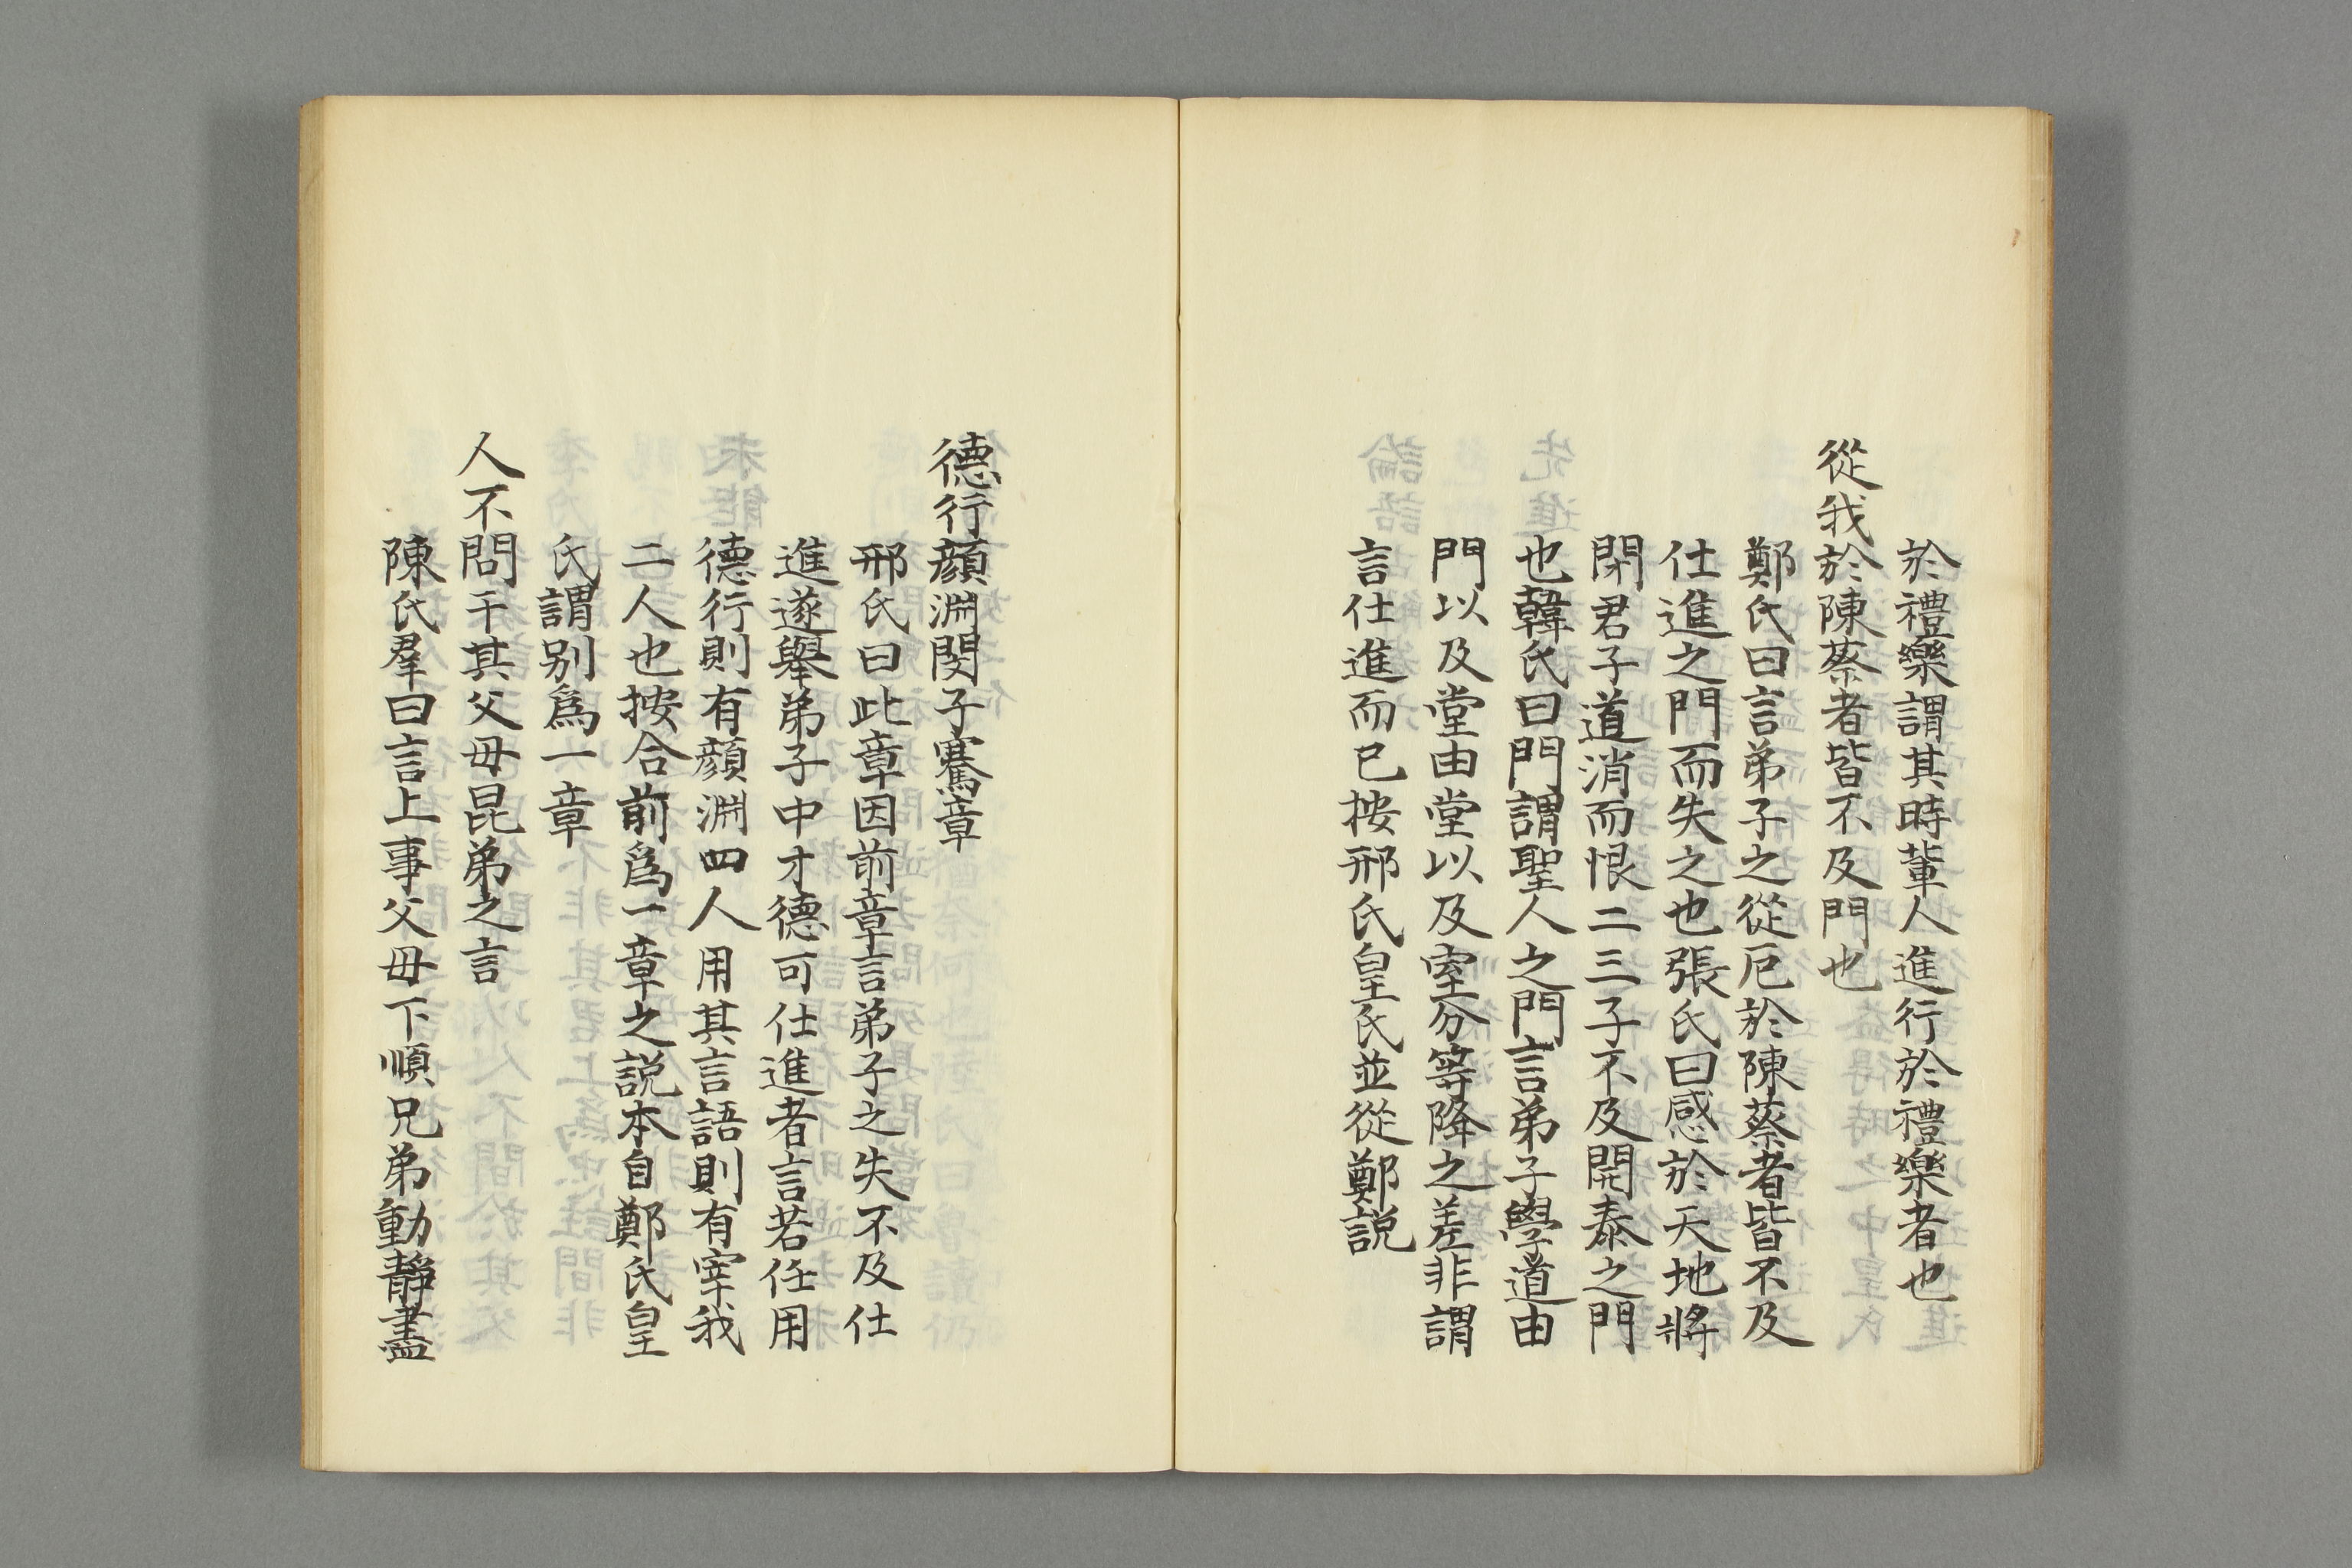 於禮樂謂其時輩人進行於禮樂者也
從我於陳蔡者皆不及門也
鄭氏曰言弟子之從厄於陳蔡者皆不及
仕進之門而失之也張氏曰感於天地將
閉君子道消而恨二三子不及開泰之門
也韓氏曰門謂聖人之門言弟子學道由
門以及堂由堂以及室分等降之差非謂
言仕進而已按邢氏皇氏並從鄭説
德行顔淵閔子騫章
邢氏曰此章因前章言弟子之失不及仕
進遂舉弟子中才德可仕進者言若任用
德行則有顔淵四人用其言語則有宰我
二人也按合前爲一章之説本自鄭氏皇
氏謂別爲一章
人不問于其父母昆弟之言
陳氏羣曰言上事父母下順兄弟動靜盡